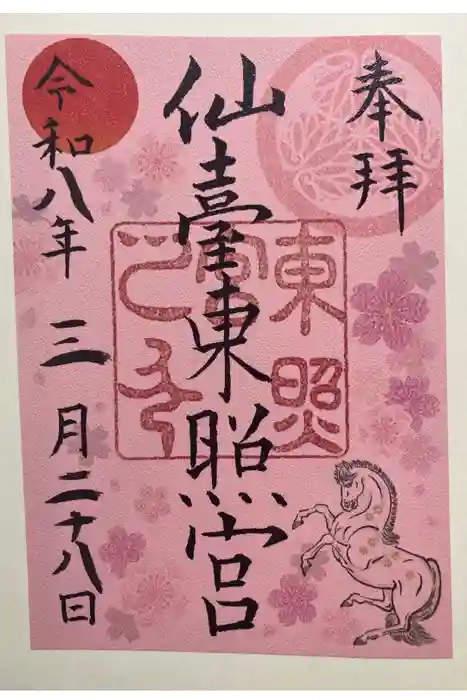 奉拝
仙臺東照宮
東照
宮
令和八年 三月二十八日